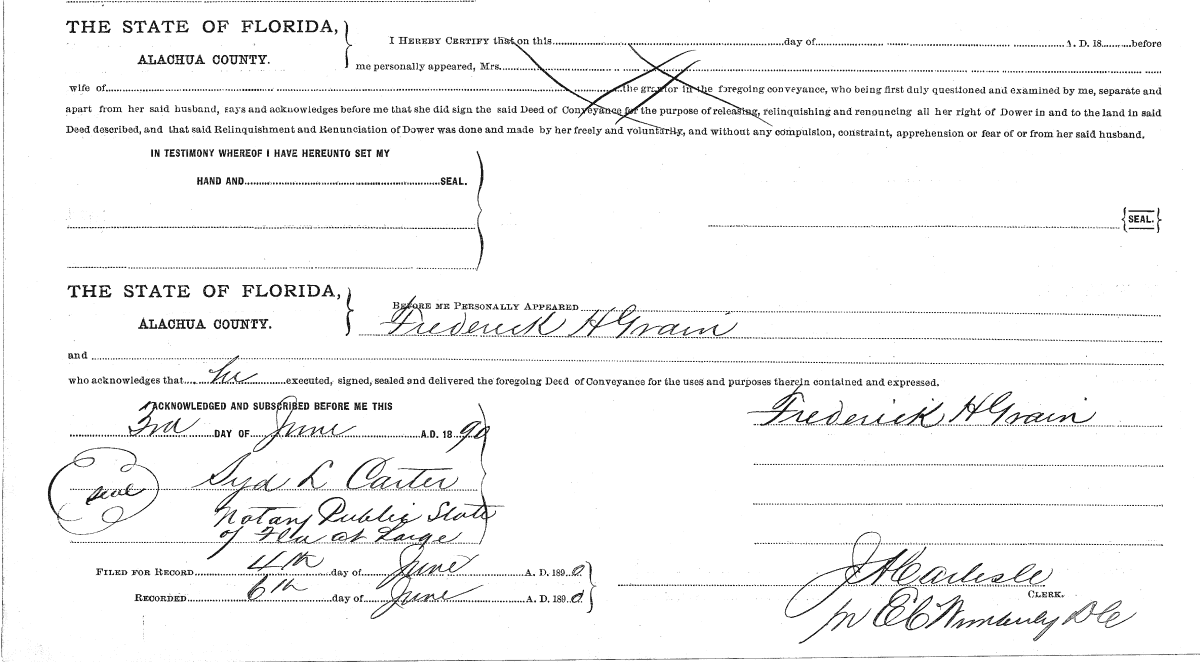 THE STATE OF FLORIDA,
ALACHUA COUNTY.
I HEREBY CERTIFY that on this day of A. D. 18 before
me personally appeared, Mrs.
wife of the grantor in the foregoing conveyance, who being first duly questioned and examined by me, separate and
apart from her said husband, says and acknowledges before me that she did sign the said Deed of Conveyance for the purpose of releasing, relinquishing and renouncing all her right of Dower in and to the land in said
Deed described, and that said Relinquishment and Renunciation of Dower was done and made by her freely and voluntarily, and without any compulsion, constraint, apprehension or fear of or from her said husband.
IN TESTIMONY WHEREOF I HAVE HEREUNTO SET MY
HAND AND SEAL.
{SEAL.}
THE STATE OF FLORIDA,
ALACHUA COUNTY.
BEFORE ME PERSONALLY APPEARED
Frederick H Grain
and
who acknowledges that he executed, signed, sealed and delivered the foregoing Deed of Conveyance for the uses and purposes therein contained and expressed.
ACKNOWLEDGED AND SUBSCRIBED BEFORE ME THIS
3rd DAY OF June A.D. 1890
Frederick H Grain
seal
Syd L Carter
Notary Public State
of Fla at Large
FILED FOR RECORD 4th day of June A. D. 1890
RECORDED 6th day of June A. D. 1890
J A Carlisle
CLERK.
pr E C Wimberly D C